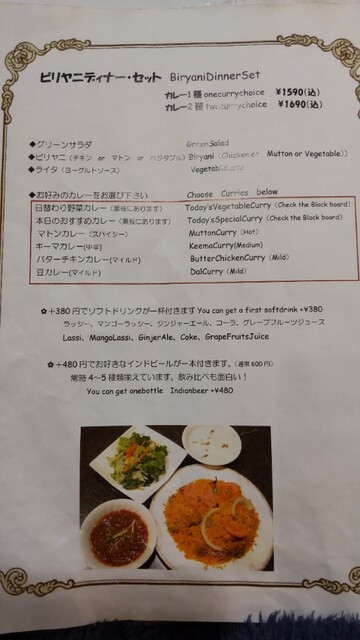 ビリヤニディナー・セット BiryaniDinnerSet
カレー1種 onecurrychoice ¥1590(込)
カレー2種 twocurrychoice ¥1690(込)
◆グリーンサラダ GreenSalad
◆ビリヤニ (チキン or マトン or ベジタブル) Biryani (Chicken or Mutton or Vegetable))
◆ライタ (ヨーグルトソース)
◆お好みのカレーをお選び下さい Choose Curries below
日替わり野菜カレー (黒板にあります) Today'sVegetableCurry (Check the Black board)
本日のおすすめカレー (黒板にあります) Today'sSpecialCurry (Check the Black board)
マトンカレー (スパイシー) MuttonCurry (Hot)
キーマカレー(中辛) KeemaCurry(Medium)
バターチキンカレー(マイルド) ButterChickenCurry (Mild)
豆カレー(マイルド) DalCurry (Mild)
✿+380円でソフトドリンクが一杯付きます You can get a first softdrink +¥380
ラッシー、マンゴーラッシー、ジンジャーエール、コーラ、グレープフルーツジュース
Lassi、MangoLassi、GinjerAle、Coke、GrapeFruitsJuice
✿+480円でお好きなインドビールが一本付きます。(通常600円)
常時4～5種類揃えています。飲み比べも面白い！
You can get onebottle Indianbeer +¥480